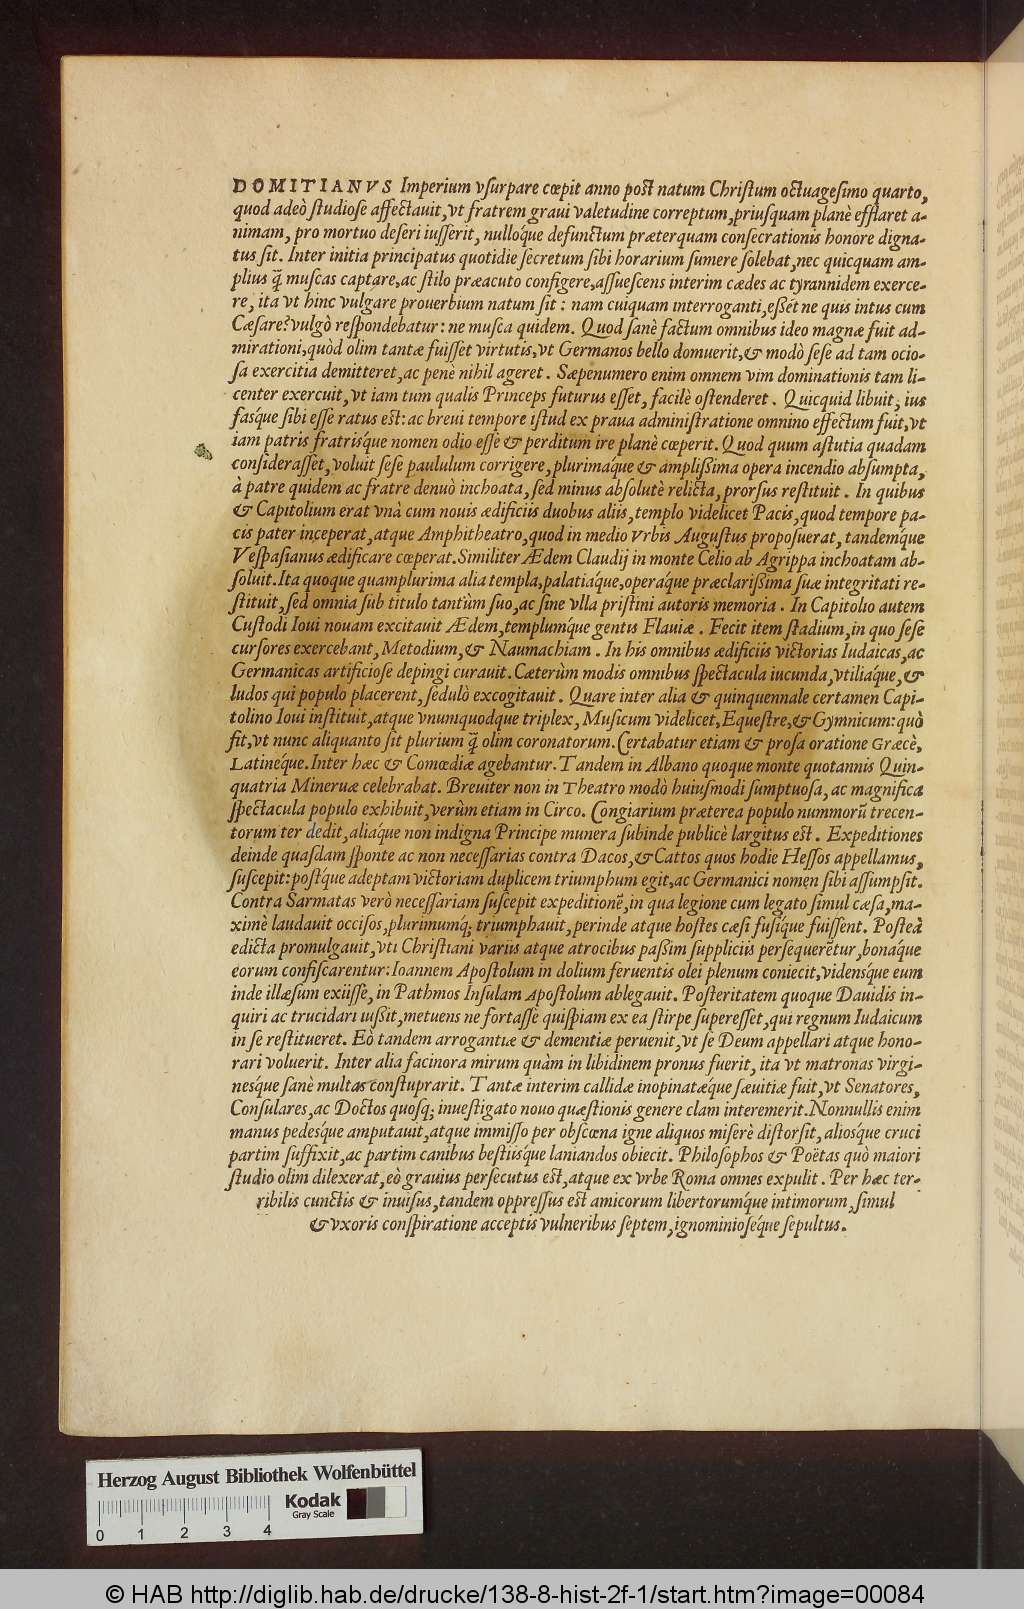 DOMITIANVS Imperium vſurpare cœpit anno poſt natum Chriſtum octuageſimo quarto,
quod adeò ſtudioſe affectauit, vt fratrem graui valetudine correptum, priuſquam planè efflaret a-
nimam, pro mortuo deſeri iuſſerit, nulloq́ue defunctum præterquam conſecrationis honore digna-
tus ſit. Inter initia principatus quotidie ſecretum ſibi horarium ſumere ſolebat, nec quicquam am-
plius q̃ muſcas captare, ac ſtilo præacuto configere, aſſueſcens interim cædes ac tyrannidem exerce-
re, ita vt hinc vulgare prouerbium natum ſit: nam cuiquam interroganti, eſſét ne quis intus cum
Cæſare? vulgò reſpondebatur: ne muſca quidem. Quod ſanè factum omnibus ideo magnæ fuit ad-
mirationi, quòd olim tantæ fuiſſet virtutis, vt Germanos bello domuerit, & modò ſeſe ad tam ocio-
ſa exercitia demitteret, ac penè nihil ageret. Sæpenumero enim omnem vim dominationis tam li-
center exercuit, vt iam tum qualis Princeps futurus eſſet, facilè oſtenderet. Quicquid libuit, ius
faſq́ue ſibi eſſe ratus eſt: ac breui tempore iſtud ex praua adminiſtratione omnino effectum fuit, vt
iam patris fratriſq́ue nomen odio eſſe & perditum ire planè cœperit. Quod quum aſtutia quadam
conſideraſſet, voluit ſeſe paululum corrigere, plurimaq́ue & ampliſſima opera incendio abſumpta,
à patre quidem ac fratre denuò inchoata, ſed minus abſolutè relicta, prorſus reſtituit. In quibus
& Capitolium erat vnà cum nouis ædificiis duobus aliis, templo videlicet Pacis, quod tempore pa-
cis pater inceperat, atque Amphitheatro, quod in medio vrbis Auguſtus propoſuerat, tandemq́ue
Veſpaſianus ædificare cœperat. Similiter Ædem Claudij in monte Celio ab Agrippa inchoatam ab-
ſoluit. Ita quoque quamplurima alia templa, palatiaq́ue, operaq́ue præclariſſima ſuæ integritati re-
ſtituit, ſed omnia ſub titulo tantùm ſuo, ac ſine vlla priſtini autoris memoria. In Capitolio autem
Cuſtodi Ioui nouam excitauit Ædem, templumq́ue gentis Flauiæ. Fecit item ſtadium, in quo ſeſe
curſores exercebant, Metodium, & Naumachiam. In his omnibus ædificiis victorias Iudaicas, ac
Germanicas artificioſe depingi curauit. Cæterùm modis omnibus ſpectacula iucunda, vtiliaq́ue, &
ludos qui populo placerent, ſedulò excogitauit. Quare inter alia & quinquennale certamen Capi-
tolino Ioui inſtituit, atque vnumquodque triplex, Muſicum videlicet, Equeſtre, & Gymnicum: quò
fit, vt nunc aliquanto ſit plurium q̃ olim coronatorum. Certabatur etiam & proſa oratione Græcè,
Latineq́ue. Inter hæc & Comœdiæ agebantur. Tandem in Albano quoque monte quotannis Quin-
quatria Mineruæ celebrabat. Breuiter non in Theatro modò huiuſmodi ſumptuoſa, ac magnifica
ſpectacula populo exhibuit, verùm etiam in Circo. Congiarium præterea populo nummorũ trecen-
torum ter dedit, aliaq́ue non indigna Principe munera ſubinde publicè largitus eſt. Expeditiones
deinde quaſdam ſponte ac non neceſſarias contra Dacos, & Cattos quos hodie Heſſos appellamus,
ſuſcepit: poſtq́ue adeptam victoriam duplicem triumphum egit, ac Germanici nomen ſibi aſſumpſit.
Contra Sarmatas verò neceſſariam ſuſcepit expeditionẽ, in qua legione cum legato ſimul cæſa, ma-
ximè laudauit occiſos, plurimumq; triumphauit, perinde atque hoſtes cæſi fuſiq́ue fuiſſent. Poſteà
edicta promulgauit, vti Chriſtiani variis atque atrocibus paſſim ſuppliciis perſequerẽtur, bonaq́ue
eorum confiſcarentur: Ioannem Apoſtolum in dolium feruentis olei plenum coniecit, videnſq́ue eum
inde illæſum exiiſſe, in Pathmos Inſulam Apoſtolum ablegauit. Poſteritatem quoque Dauidis in-
quiri ac trucidari iuſſit, metuens ne fortaſſe quiſpiam ex ea ſtirpe ſupereſſet, qui regnum Iudaicum
in ſe reſtitueret. Eò tandem arrogantiæ & dementiæ peruenit, vt ſe Deum appellari atque hono-
rari voluerit. Inter alia facinora mirum quàm in libidinem pronus fuerit, ita vt matronas virgi-
neſq́ue ſanè multas conſtuprarit. Tantæ interim callidæ inopinatæq́ue ſæuitiæ fuit, vt Senatores,
Conſulares, ac Doctos quoſq; inueſtigato nouo quæſtionis genere clam interemerit. Nonnullis enim
manus pedeſq́ue amputauit, atque immiſſo per obſcœna igne aliquos miſerè diſtorſit, alioſq́ue cruci
partim ſuffixit, ac partim canibus beſtiiſq́ue laniandos obiecit. Philoſophos & Poëtas quò maiori
ſtudio olim dilexerat, eò grauius perſecutus eſt, atque ex vrbe Roma omnes expulit. Per hæc ter-
ribilis cunctis & inuiſus, tandem oppreſſus eſt amicorum libertorumq́ue intimorum, ſimul
& vxoris conſpiratione acceptis vulneribus ſeptem, ignominioſeq́ue ſepultus.
Herzog August Bibliothek Wolfenbüttel
Kodak
Gray Scale
0 1 2 3 4
© HAB http://diglib.hab.de/drucke/138-8-hist-2f-1/start.htm?image=00084